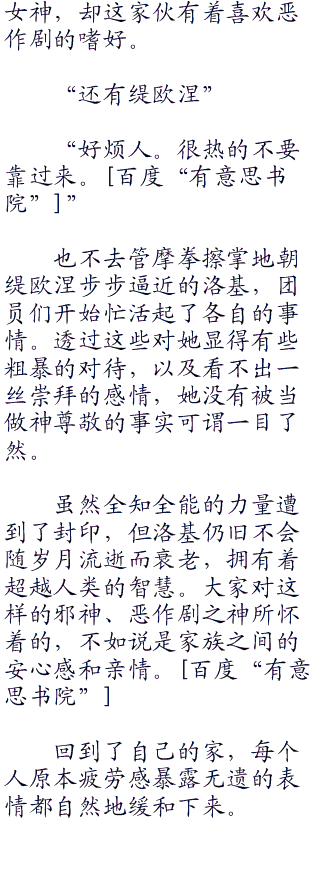 女神，却这家伙有着喜欢恶
作剧的嗜好。
“还有缇欧涅”
“好烦人。很热的不要
靠过来。[百度“有意思书
院”]”
也不去管摩拳擦掌地朝
缇欧涅步步逼近的洛基，团
员们开始忙活起了各自的事
情。透过这些对她显得有些
粗暴的对待，以及看不出一
丝崇拜的感情，她没有被当
做神尊敬的事实可谓一目了
然。
虽然全知全能的力量遭
到了封印，但洛基仍旧不会
随岁月流逝而衰老，拥有着
超越人类的智慧。大家对这
样的邪神、恶作剧之神所怀
着的，不如说是家族之间的
安心感和亲情。[百度“有意
思书院”]
回到了自己的家，每个
人原本疲劳感暴露无遗的表
情都自然地缓和下来。